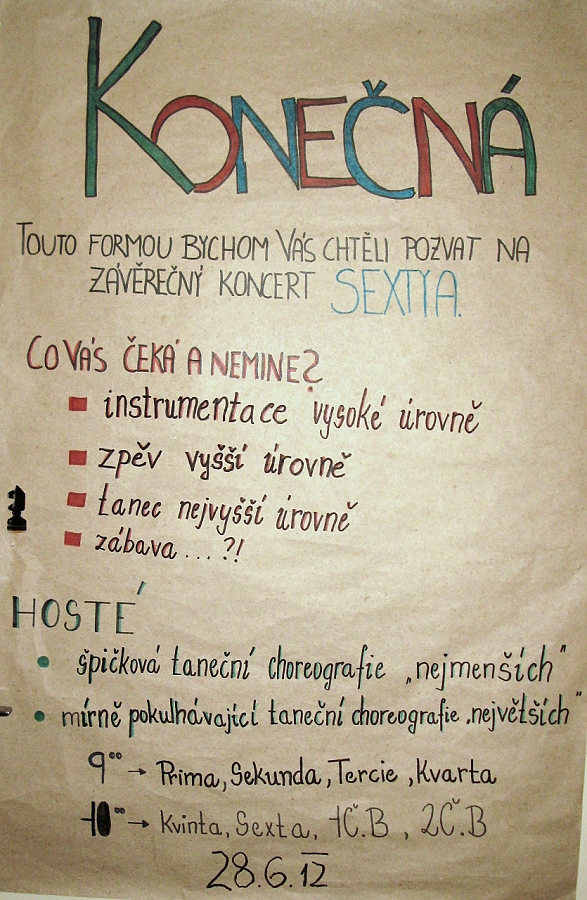 KONEČNÁ
TOUTO FORMOU BYCHOM VÁS CHTĚLI POZVAT NA
ZÁVĚREČNÝ KONCERT SEXTY A.
CO VÁS ČEKÁ A NEMINE?
instrumentace vysoké úrovně
zpěv vyšší úrovně
tanec nejvyšší úrovně
zábava...?!
HOSTÉ
špičková taneční choreografie „nejmenších"
mírně pokulhávající taneční choreografie „největších"
9°° → Prima, Sekunda, Tercie, Kvarta
10°° → Kvinta, Sexta, 1Č.B, 2Č.B
28.6.12